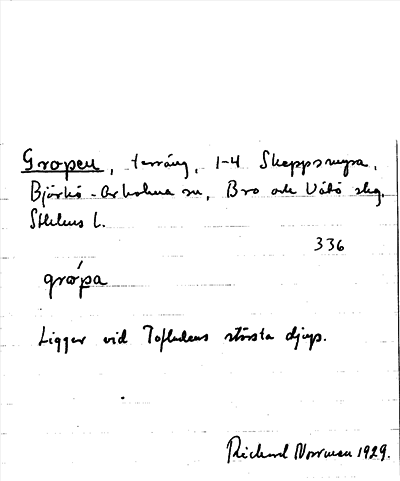 Gropen, terräng, 1-4 Skeppsmyra,
Björkö-Arholma sn, Bro och Vätö skg.
Sthlms l.
336
grǿpa
Ligger vid Tofladens största djup.
Richard Norrman 1929.